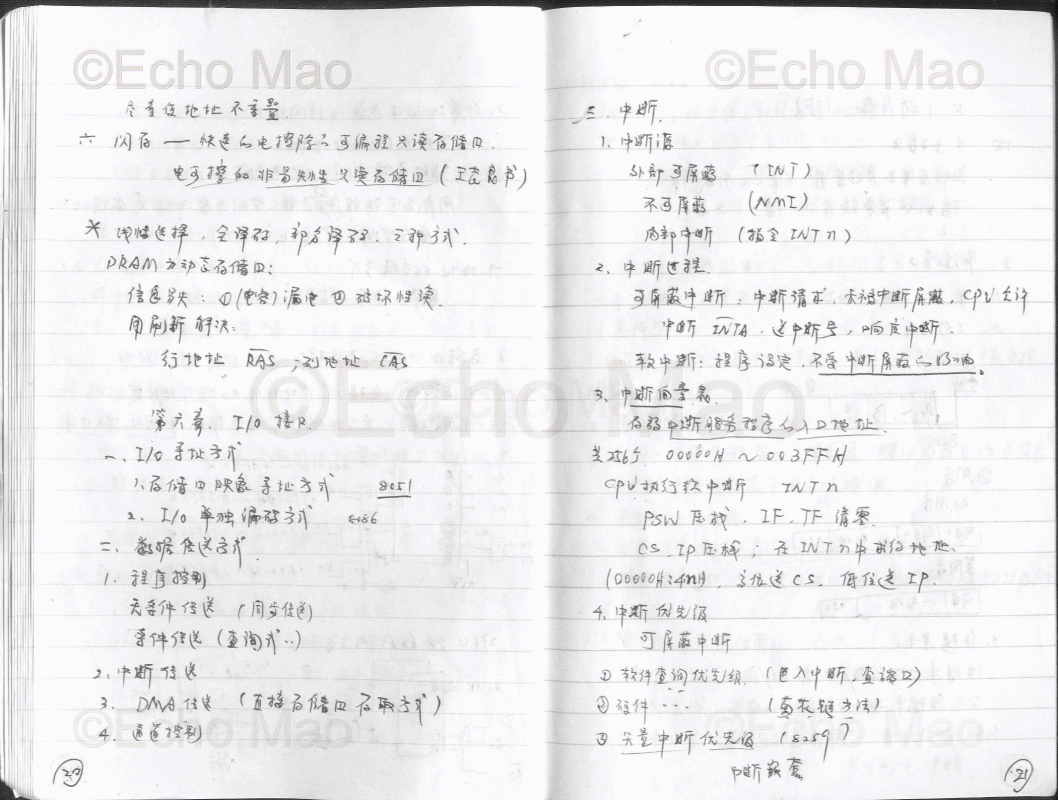 ©Echo Mao
尽量使地址不重叠
六 闪存 —— 快速的电擦除的可编程只读存储口.
电可擦的非易失性只读存储口(王克义书)
* 线性选择, 全译码, 部分译码 三种方式.
DRAM为动态存储口:
信息丢失: ①(电容)漏电 ②破坏性读.
用刷新解决:
行地址 RAS, 列地址 CAS
第六章 I/O 接口
一、I/O 寻址方式
1. 存储口映象寻址方式 8051
2. I/O 单独编码方式 8086
二、数据传送方式
1. 程序控制
无条件传送 (同步传送)
条件传送 (查询式..)
2. 中断传送
3. DMA传送 (直接存储口存取方式)
4. 通道控制
20
©Echo Mao
三 中断.
1. 中断源
外部可屏蔽 (INT)
不可屏蔽 (NMI)
内部中断 (指令 INT n)
2. 中断过程.
可屏蔽中断: 中断请求, 未被中断屏蔽, CPU允许
中断 INTA, 送中断号, 响应中断.
软中断: 程序设定, 不受中断屏蔽的影响.
3. 中断向量表.
存放中断服务程序的入口地址.
共256个 00000H ~ 003FFH
CPU执行软中断 INT n
PSW压栈, IF, TF 清零.
CS, IP压栈; 在INT n中取得地址.
(0000H:4nH, 高位送CS, 低位送IP.
4. 中断优先级
可屏蔽中断
① 软件查询优先级. (进入中断, 查端口)
② 硬件 ··· (菊花链方法)
③ 矢量中断优先级 (8259)
中断嵌套
21
©Echo Mao